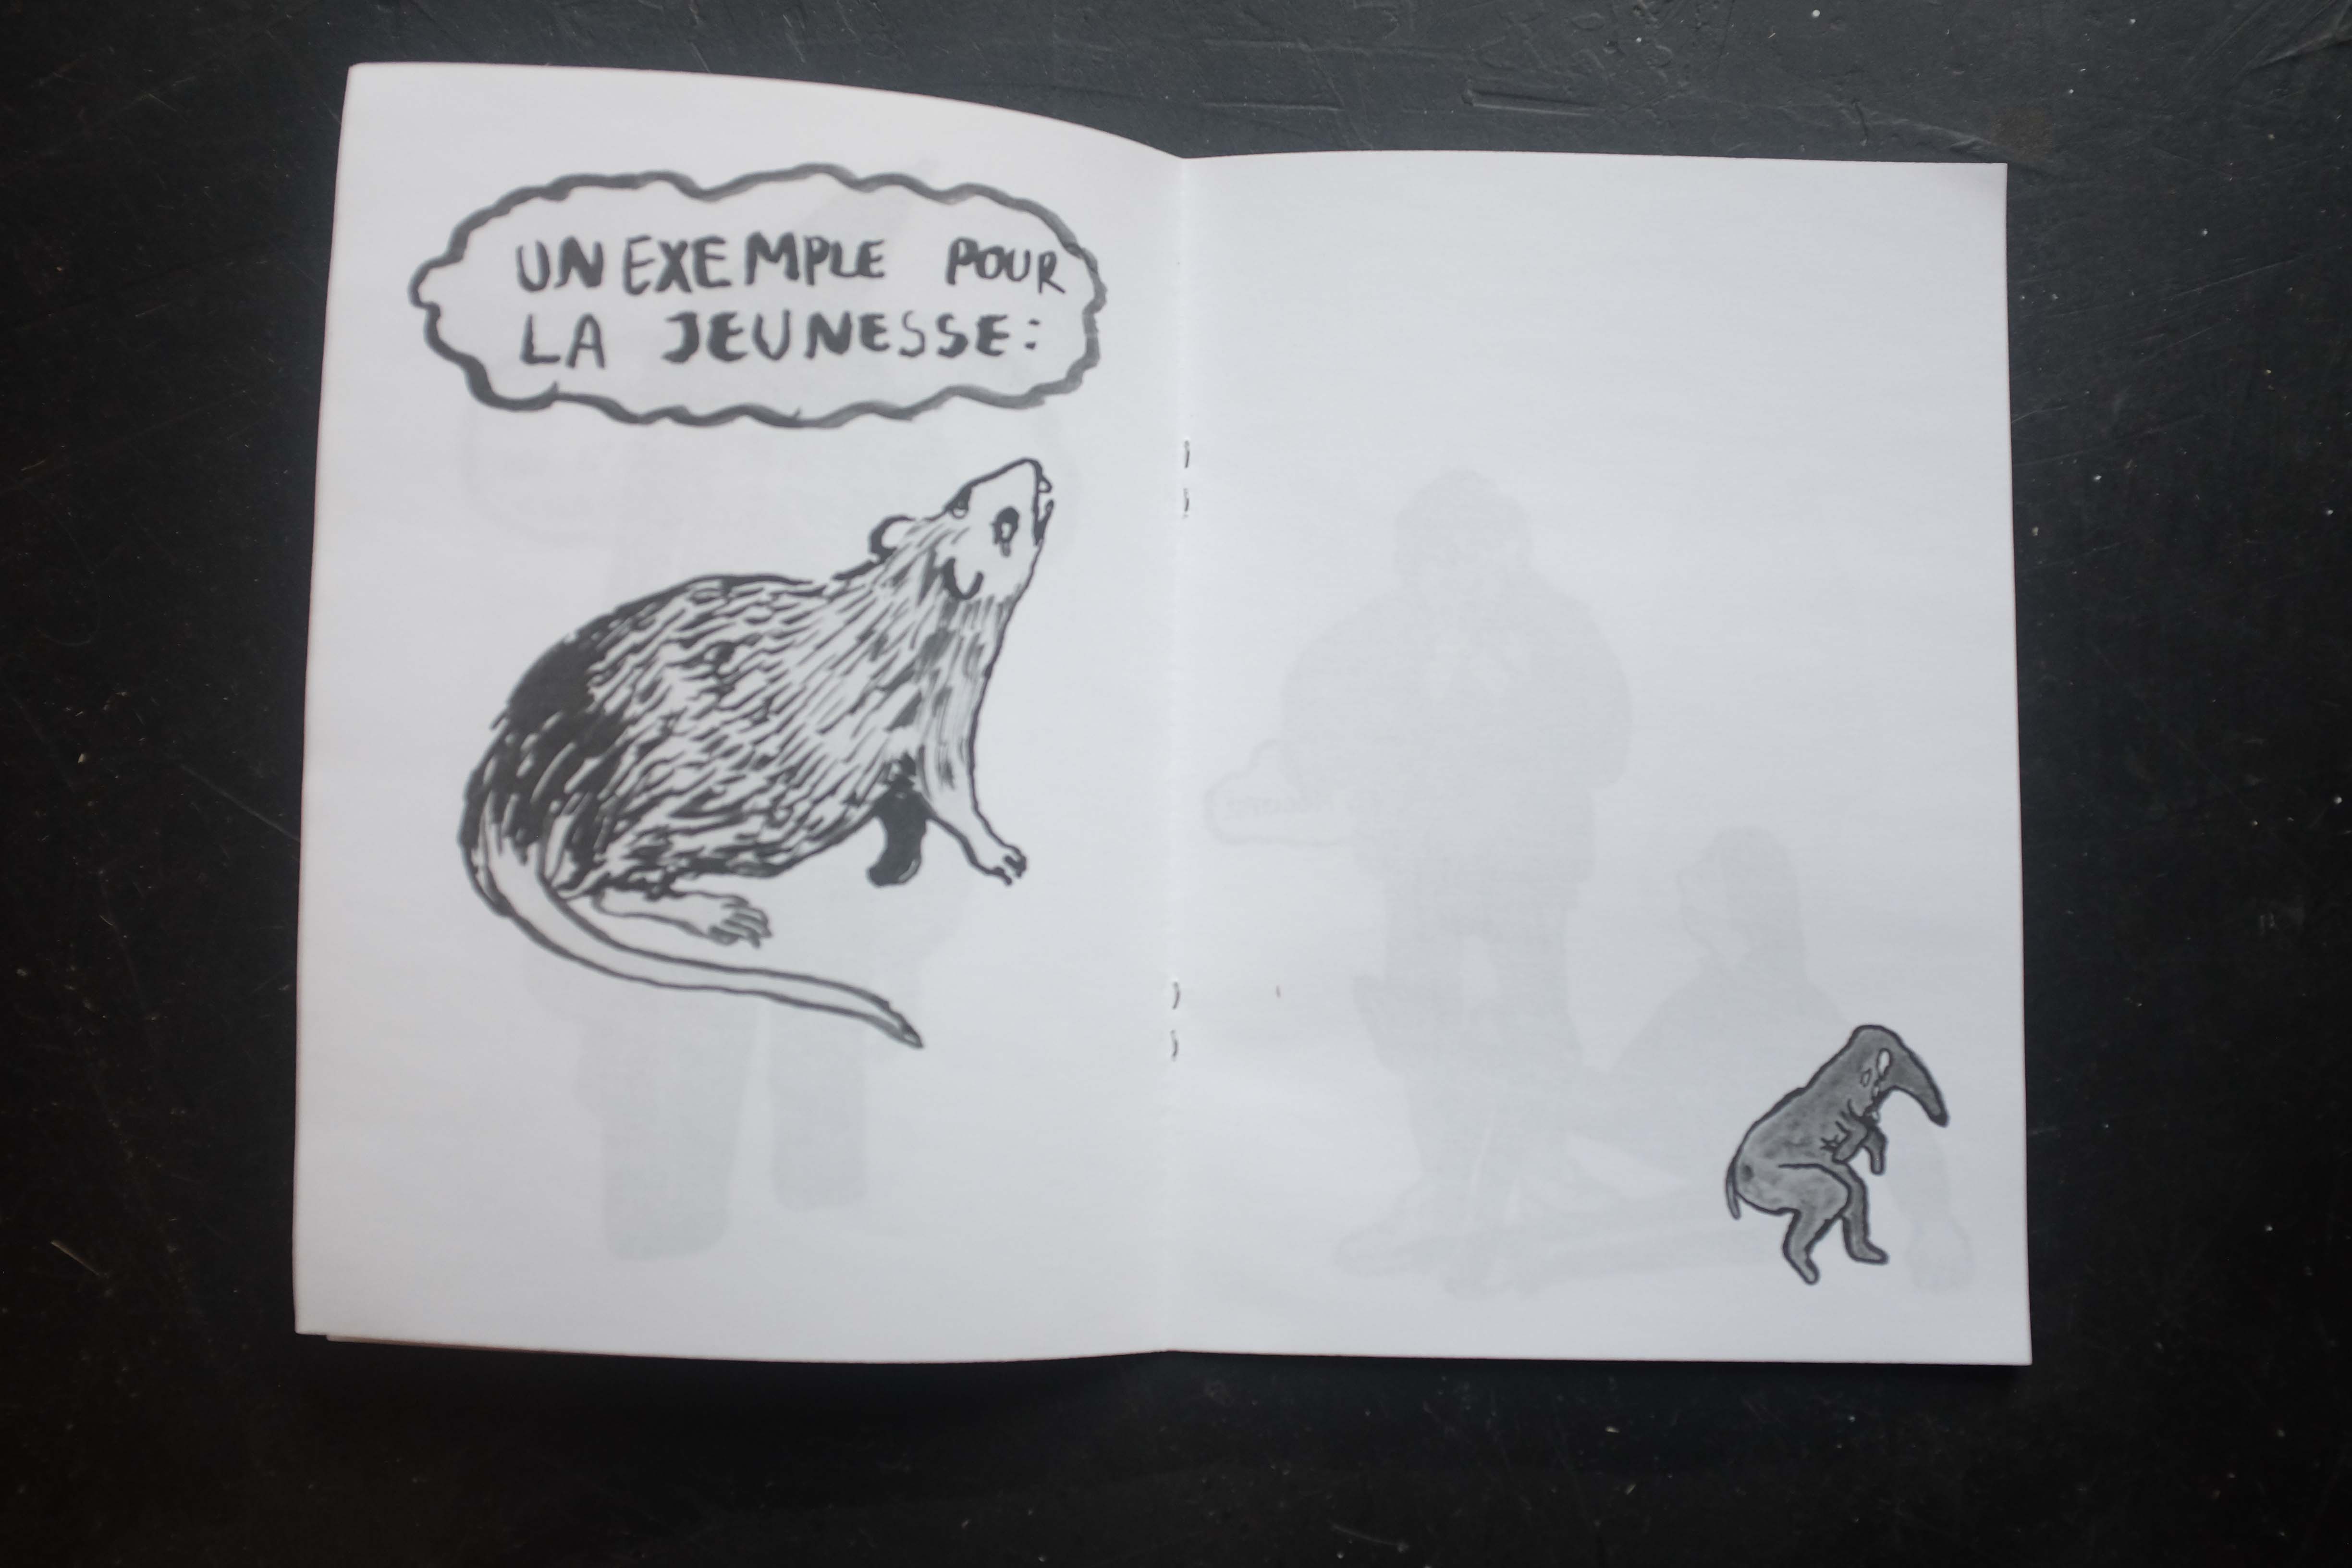 UN EXEMPLE POUR
LA JEUNESSE: